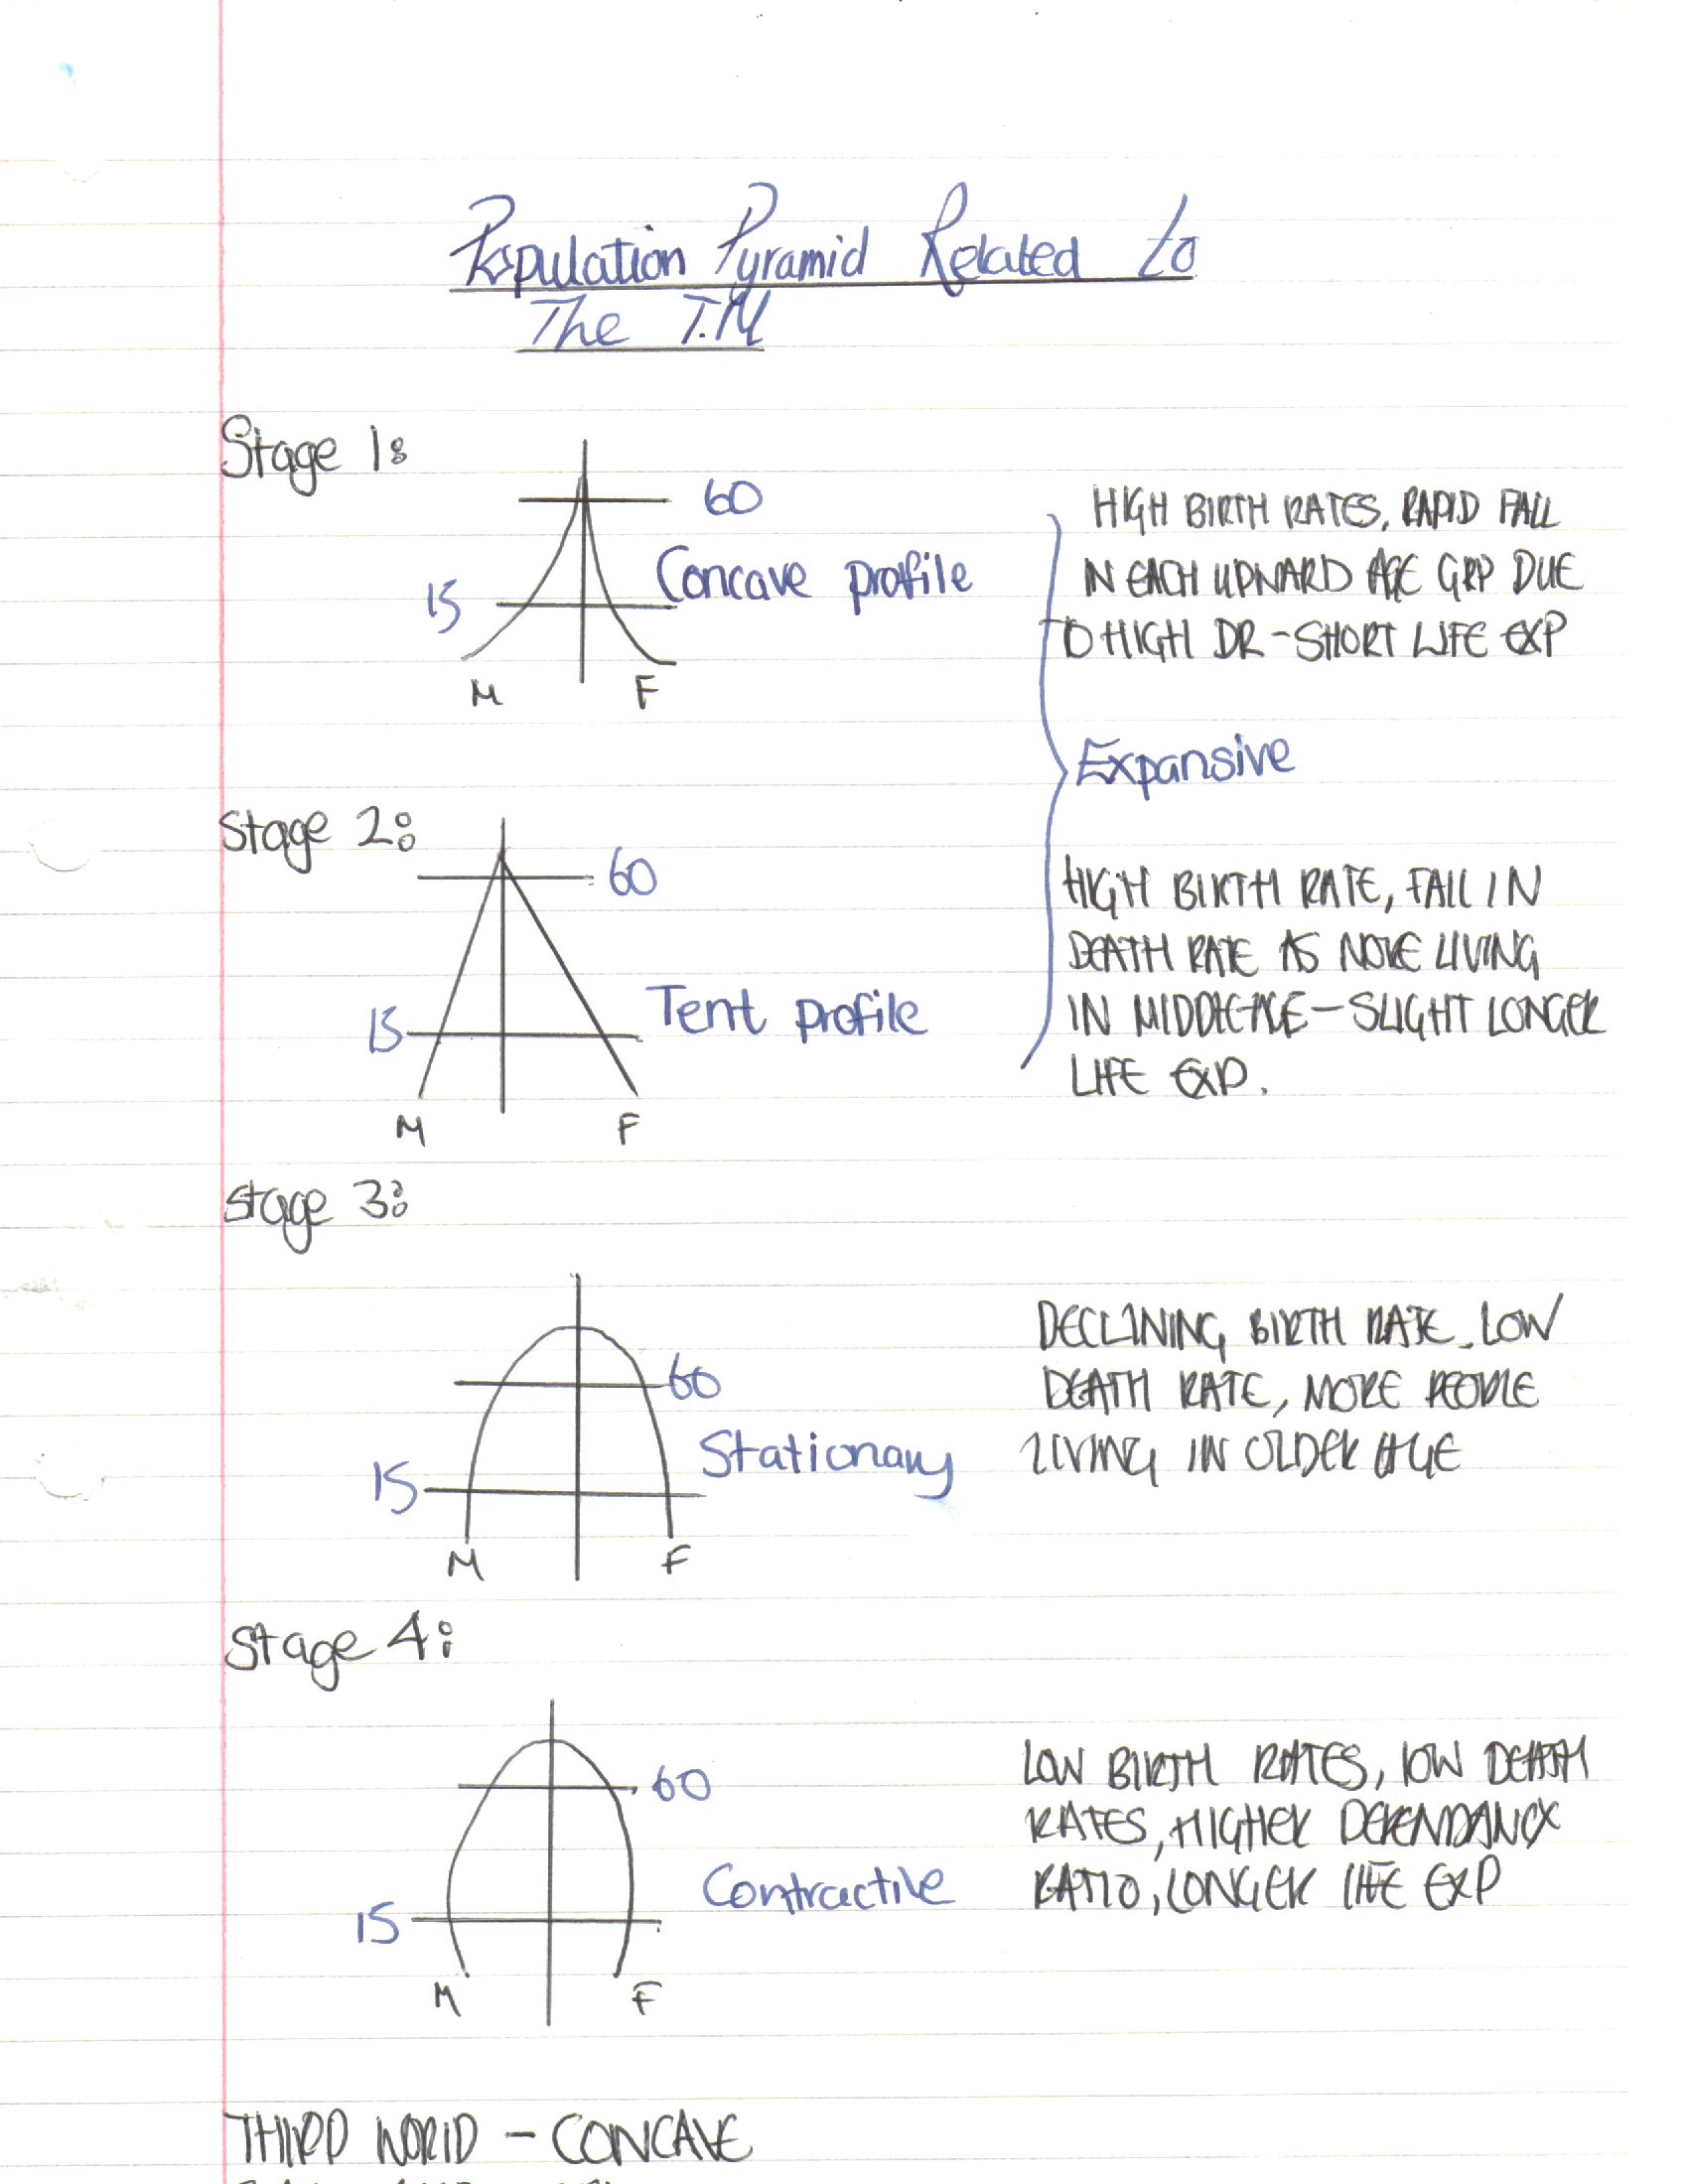 Population Pyramid Related to
The T.M
Stage 1:
60
Concave profile
15
M F
HIGH BIRTH RATES, RAPID FALL
IN EACH UPWARD AGE GRP DUE
TO HIGH DR - SHORT LIFE EXP
Expansive
Stage 2:
60
Tent profile
15
M F
HIGH BIRTH RATE, FALL IN
DEATH RATE AS MORE LIVING
IN MIDDLE-AGE - SLIGHT LONGER
LIFE EXP.
Stage 3:
60
Stationary
15
M F
DECLINING BIRTH RATE, LOW
DEATH RATE, MORE PEOPLE
LIVING IN OLDER AGE
Stage 4:
60
Contractile
15
M F
LOW BIRTH RATES, LOW DEATH
RATES, HIGHER DEPENDANCY
RATIO, LONGER LIFE EXP
THIRD WORLD - CONCAVE